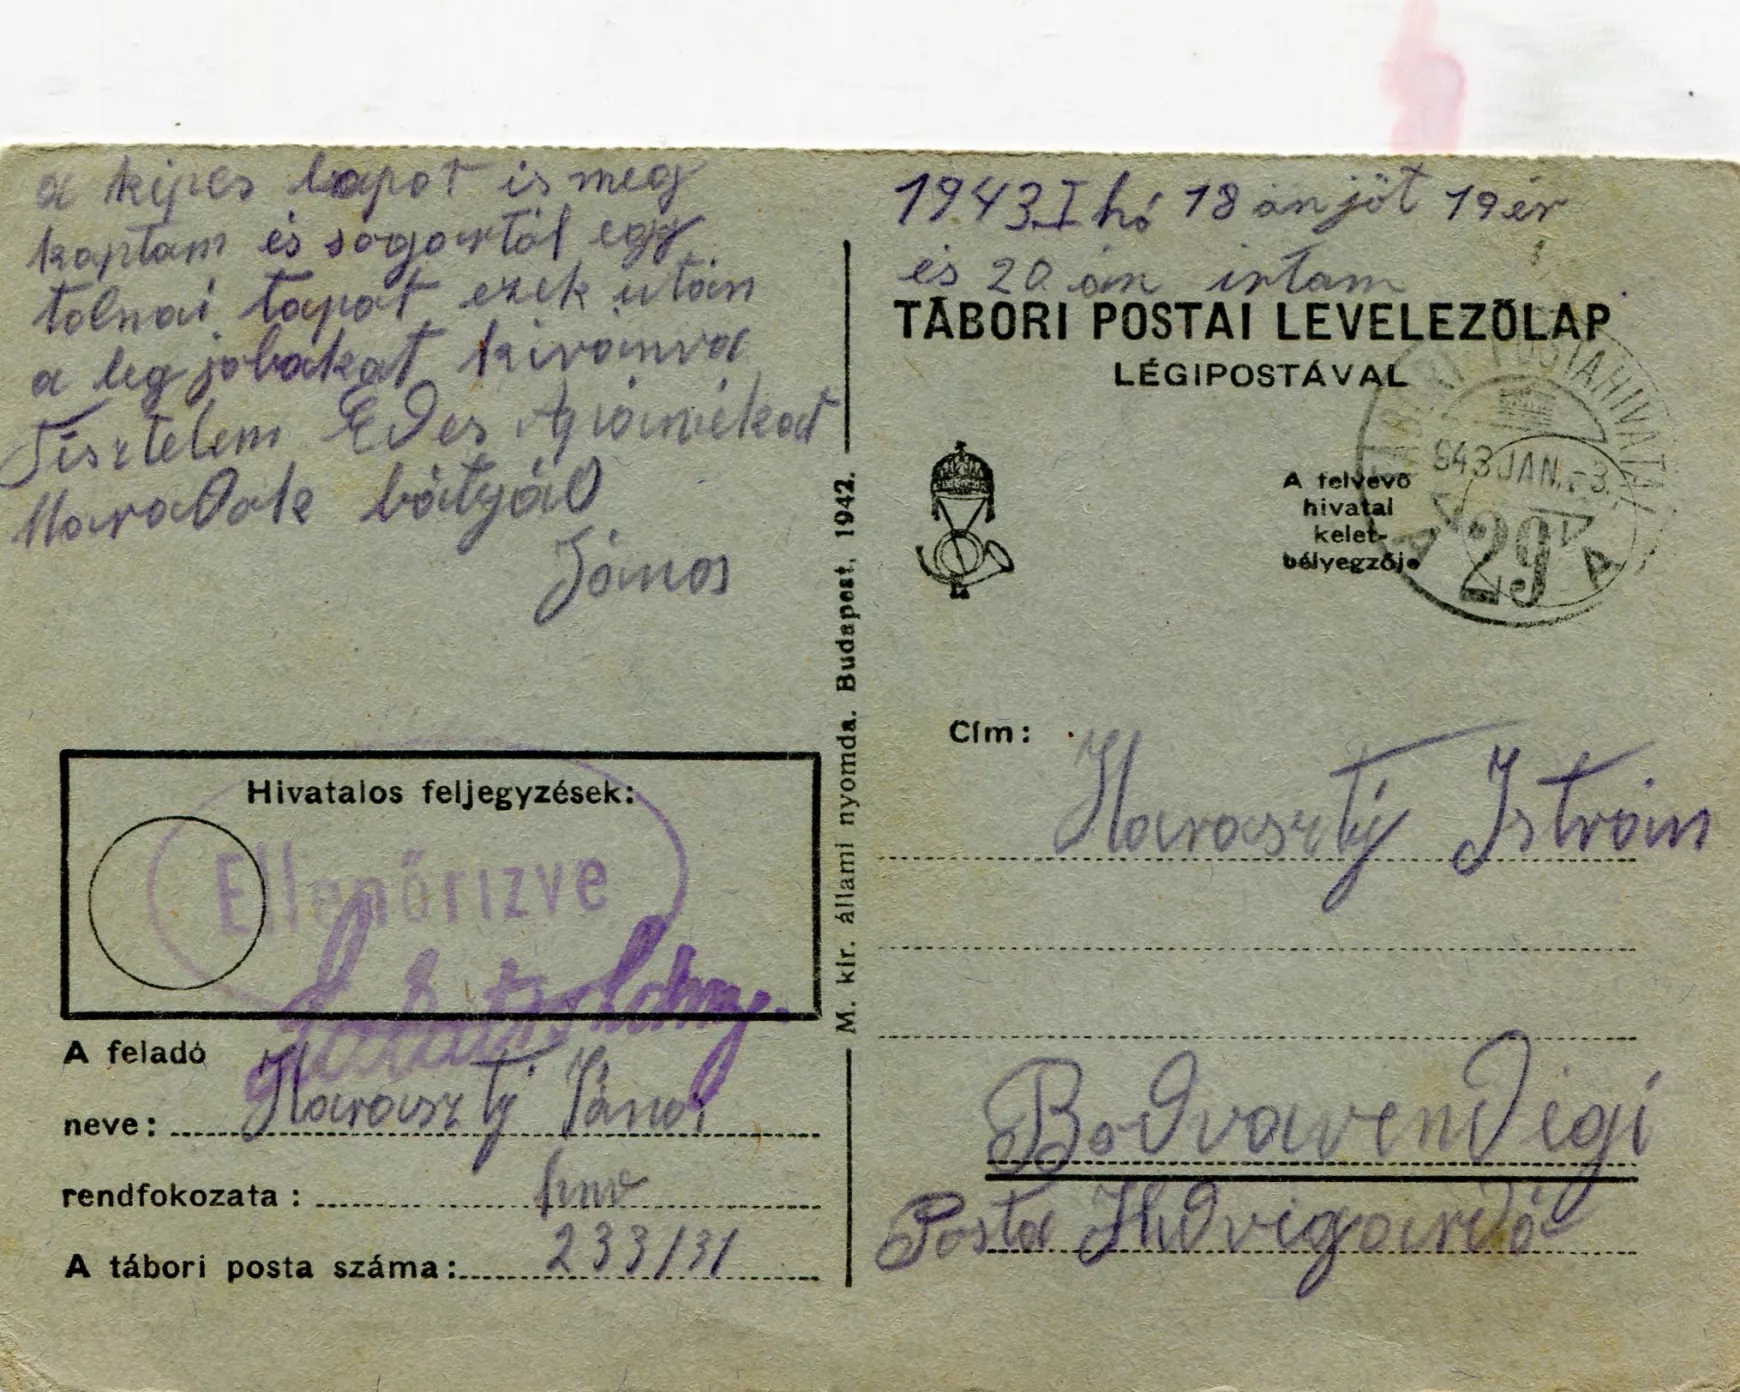 a kipes lapot is meg
kaptam és sogortól egy
tolnai lapot ezek után
a leg jobakat kivánva
Tisztelem Edes Apámékat
Maradok bátyád
János
Hivatalos feljegyzések:
Ellenőrizve
A feladó
neve: Haraszty János
rendfokozata: hnv
A tábori posta száma: 233/31
M. kir. állami nyomda. Budapest, 1942.
1943 I hó 18 án jöt 19 ér
és 20 án irtam
TÁBORI POSTAI LEVELEZŐLAP
LÉGIPOSTÁVAL
A felvevő
hivatal
kelet-
bélyegzője
TÁBORI POSTAHIVATAL
943 JAN.
29
A A
Cím:
Haraszty István
Bodvavendégi
Posta Hidvigardó